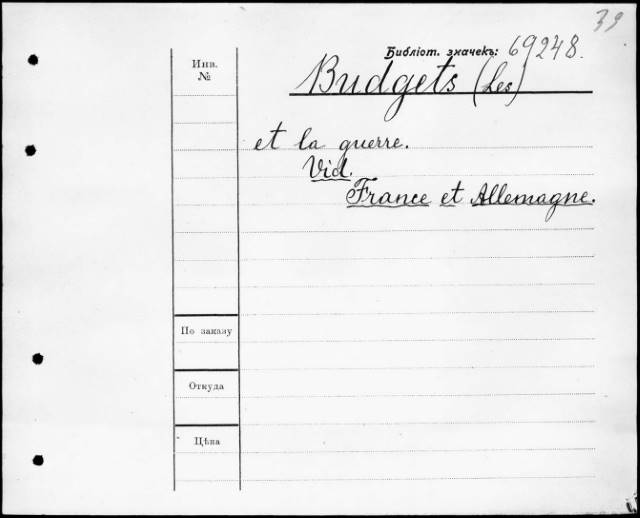 39
Библіот. значекъ: 69248.
Инв.
№
Budgets (Les)
et la guerre.
Vid.
France et Allemagne.
По заказу
Откуда
Цѣна